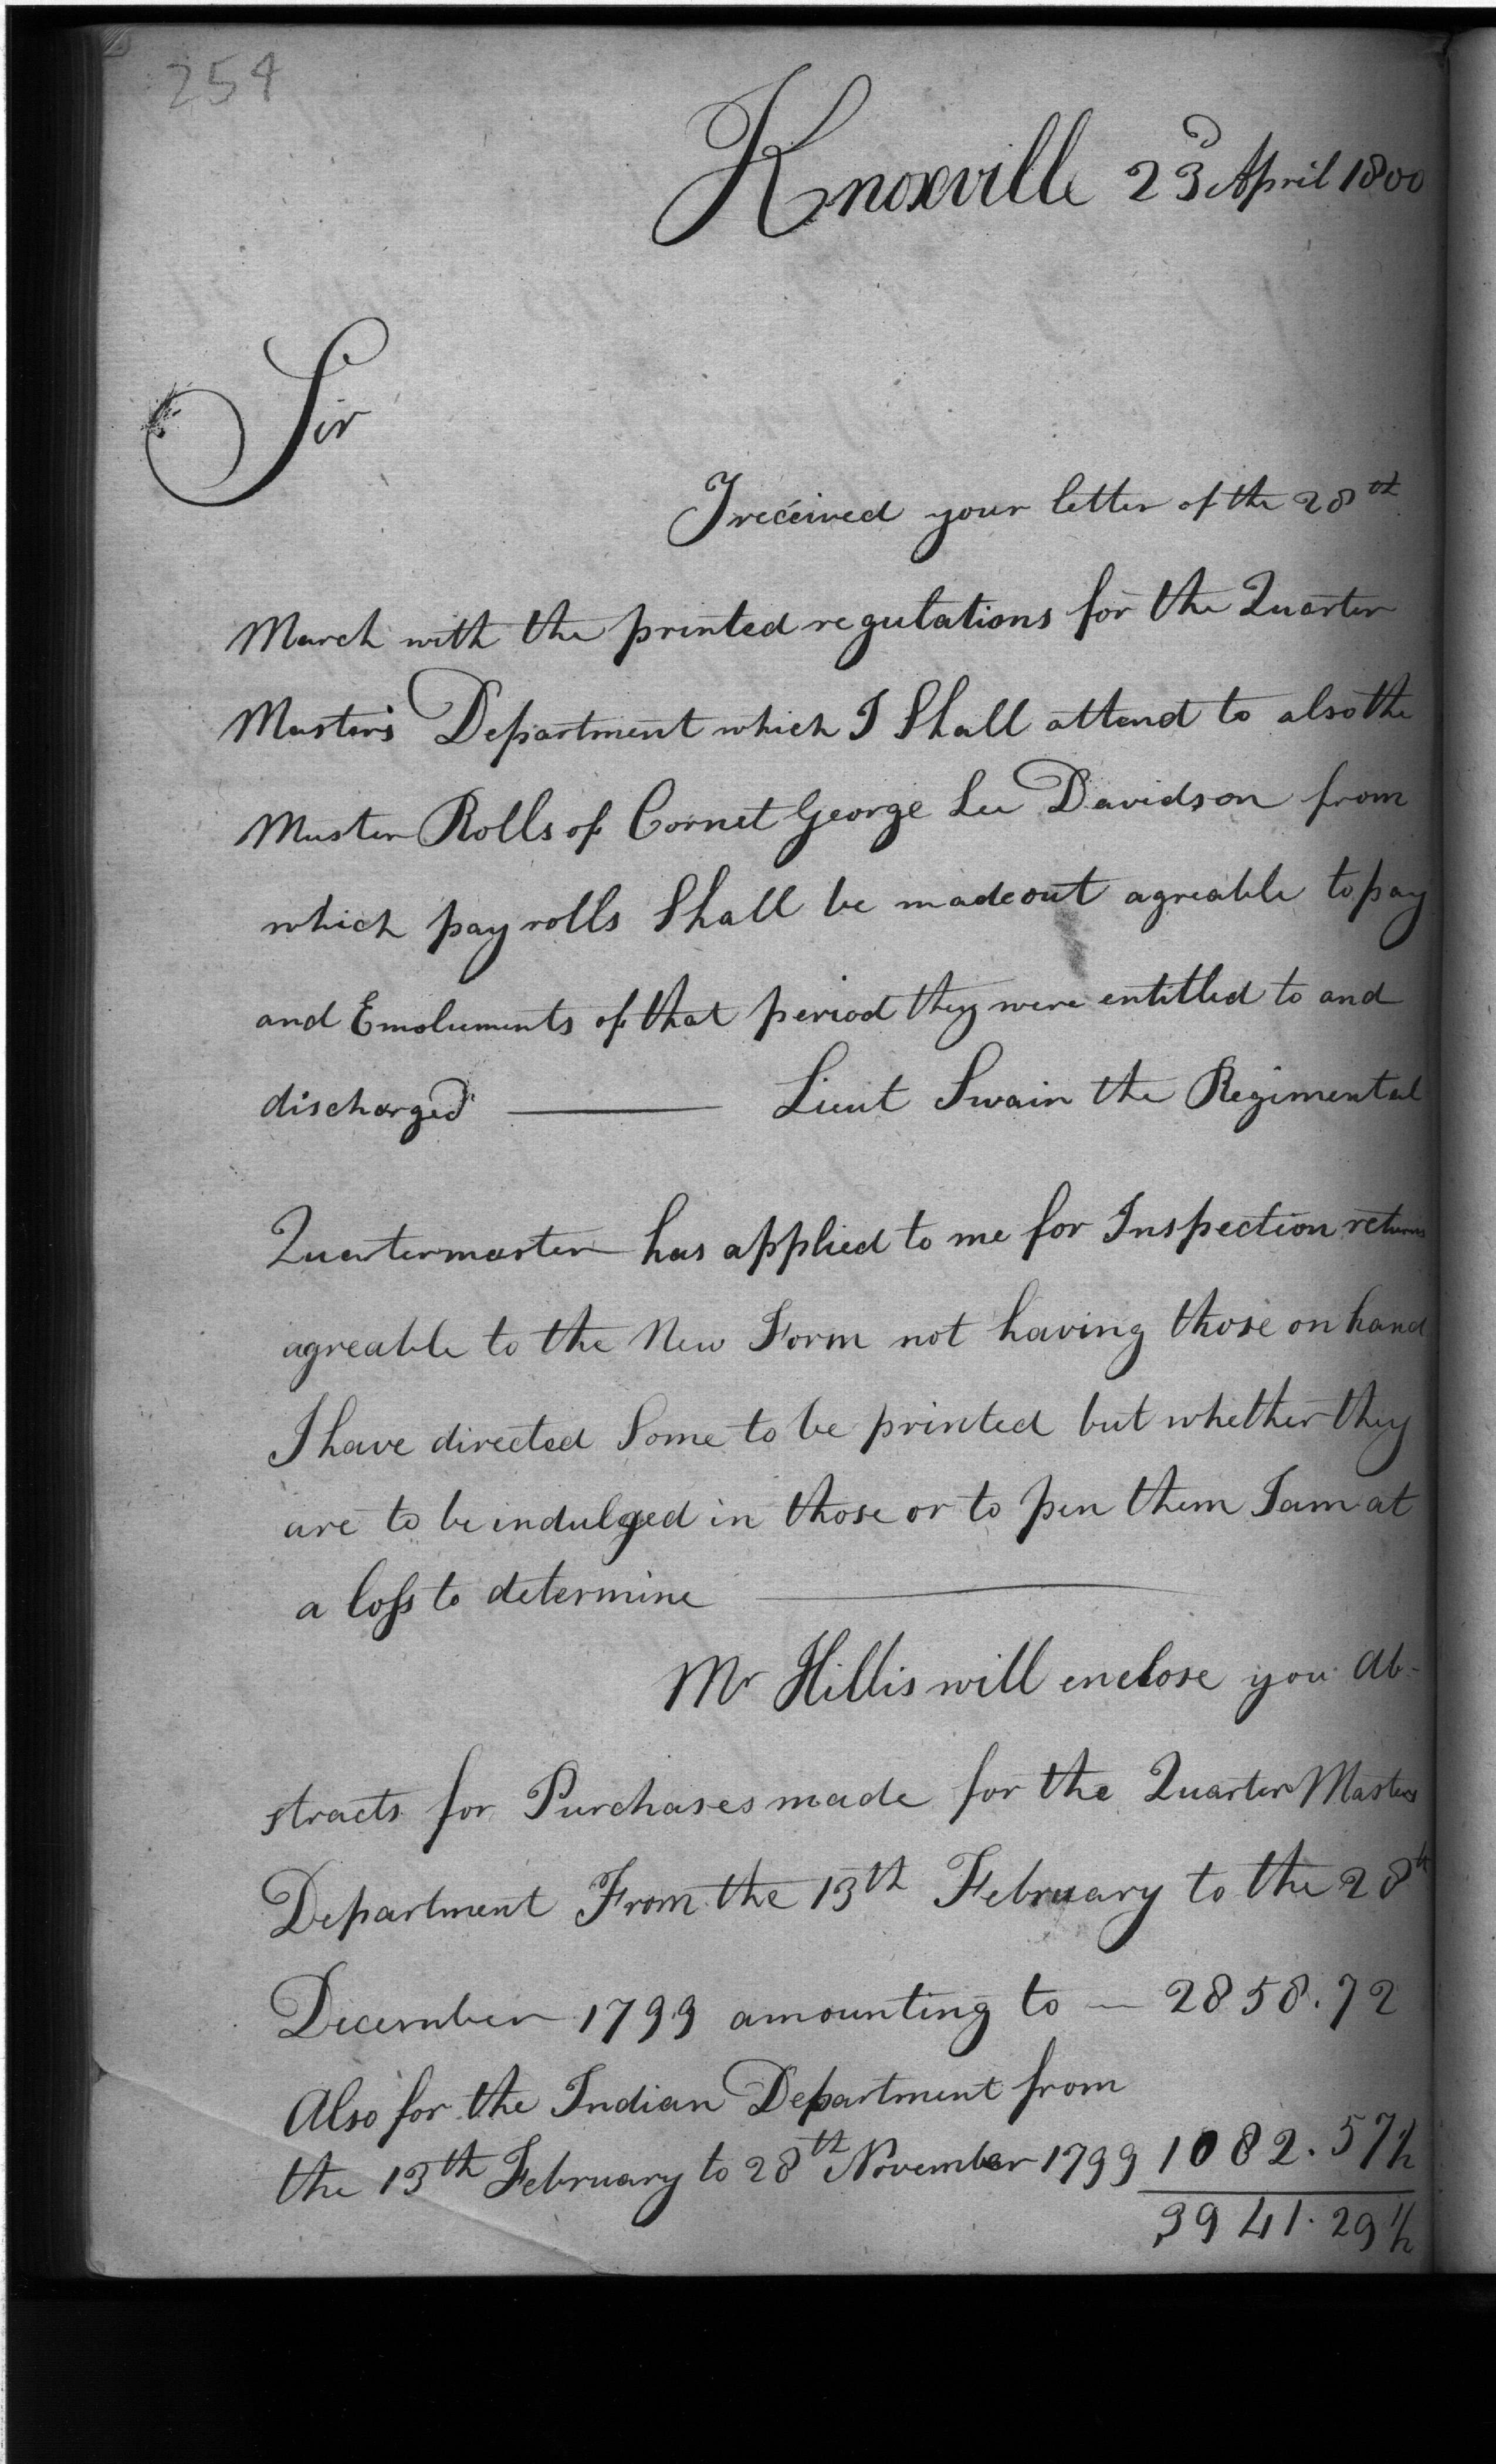 254
Knoxville 23d April 1800
Sir
I received your letter of the 28th
March with the printed regulations for the Quarter
Masters Department which I Shall attend to also the
Muster Rolls of Cornet George Lee Davidson from
which pay rolls Shall be made out agreable to pay
and Emoluments of that period they were entitled to and
discharged ——— Lieut Swain the Regimental
Quartermaster has applied to me for Inspection returns
agreable to the New Form not having those on hand
I have directed Some to be printed but whether they
are to be indulged in those or to pen them I am at
a loss to determine ———
Mr Hillis will enclose you Ab-
stracts for Purchases made for the Quarter Masters
Department From the 13th February to the 28th
December 1799 amounting to — 2858.72
Also for the Indian Department from
the 13th February to 28th November 1799 1082.57½
3941.29½